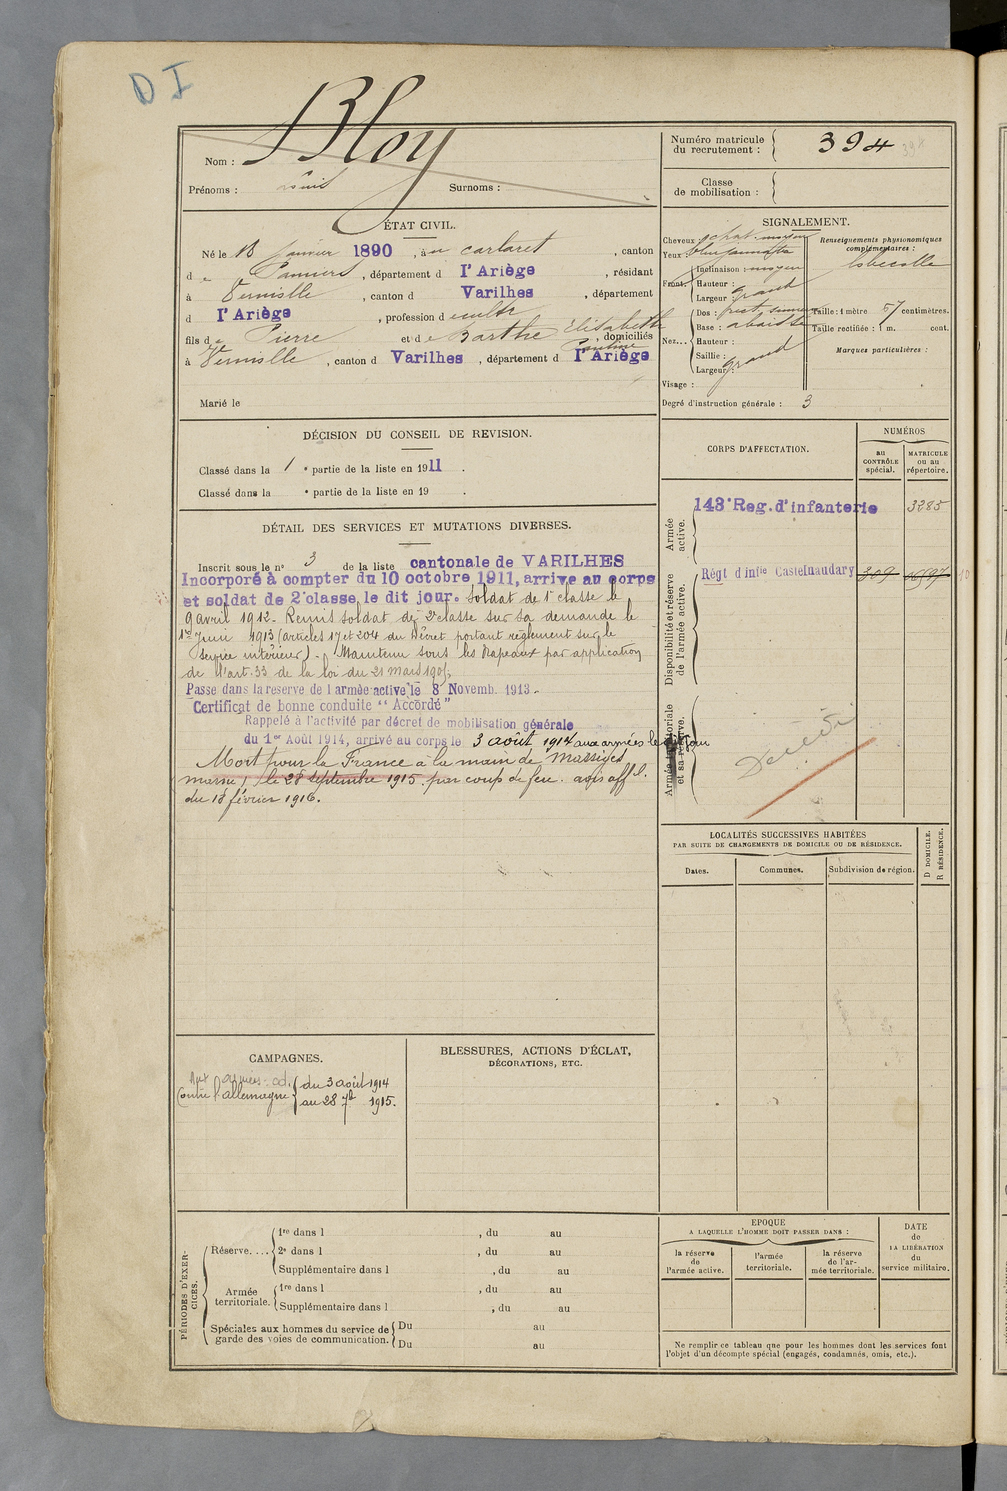 D I
Nom : Bloy
Prénoms :
Surnoms :
Numéro matricule
du recrutement : 394
Classe
de mobilisation :
ÉTAT CIVIL.
Né le 13 janvier 1890, à carlaret, canton
d Pamiers, département d l'Ariège, résidant
à Verniolle, canton d Varilhes, département
d l'Ariège, profession d cultr
fils de Pierre et de Barthe Elisabeth
, domiciliés
à Verniolle, canton d Varilhes, département d l'Ariège
Marié le
SIGNALEMENT.
Cheveux chat. moyen
Yeux
Front. Inclinaison : moyen
Hauteur : grand
Largeur :
Nez... Dos :
Base : abaissée
Hauteur :
Saillie : grand
Largeur :
Visage :
Degré d'instruction générale : 3
Renseignements physionomiques
complémentaires :
Taille : 1 mètre 57 centimètres.
Taille rectifiée : 1 m. cent.
Marques particulières :
DÉCISION DU CONSEIL DE REVISION.
Classé dans la 1 e partie de la liste en 1911.
Classé dans la e partie de la liste en 19 .
DÉTAIL DES SERVICES ET MUTATIONS DIVERSES.
Inscrit sous le n° 3 de la liste cantonale de VARILHES
Incorporé à compter du 10 octobre 1911, arrive au corps
et soldat de 2e classe, le dit jour. Soldat de 1e classe le
9 avril 1912. Remis soldat de 2e classe sur sa demande le
1er Juin 1913 (articles 17 et 204 du Décret portant règlement sur le
service intérieur). Maintenu sous les drapeaux par application
de l'art. 33 de la loi du 21 mars 1905.
Passe dans la reserve de l'armée active le 8 Novemb. 1913.
Certificat de bonne conduite "Accordé"
Rappelé à l'activité par décret de mobilisation générale
du 1er Août 1914, arrivé au corps le 3 août 1914 aux armées le dit jour
Mort pour la France à la main de Massiges
marne) le 28 septembre 1915 par coup de feu. avis offl.
du 18 février 1916.
CORPS D'AFFECTATION.
NUMÉROS
au
CONTRÔLE
spécial.
MATRICULE
ou au
répertoire.
Armée
active.
143e Reg. d'infanterie 3285
Disponibilité et réserve
de l'armée active.
Régt d'infie Castelnaudary 309
Armée territoriale
et sa réserve.
Décédé
LOCALITÉS SUCCESSIVES HABITÉES
PAR SUITE DE CHANGEMENTS DE DOMICILE OU DE RÉSIDENCE.
Dates.
Communes.
Subdivision de région.
D DOMICILE.
R RÉSIDENCE.
CAMPAGNES.
Aux armées
Contre l'allemagne
du 3 août 1914
au 28 7b 1915.
BLESSURES, ACTIONS D'ÉCLAT,
DÉCORATIONS, ETC.
PÉRIODES D'EXER-
CICES.
Réserve....
1re dans l , du au
2e dans l , du au
Supplémentaire dans l , du au
Armée
territoriale.
1re dans l , du au
Supplémentaire dans l , du au
Spéciales aux hommes du service de
garde des voies de communication.
Du au
Du au
EPOQUE
A LAQUELLE L'HOMME DOIT PASSER DANS :
la réserve
de
l'armée active.
l'armée
territoriale.
la réserve
de l'ar-
mée territoriale.
DATE
de
LA LIBÉRATION
du
service militaire.
Ne remplir ce tableau que pour les hommes dont les services font
l'objet d'un décompte spécial (engagés, condamnés, omis, etc.).